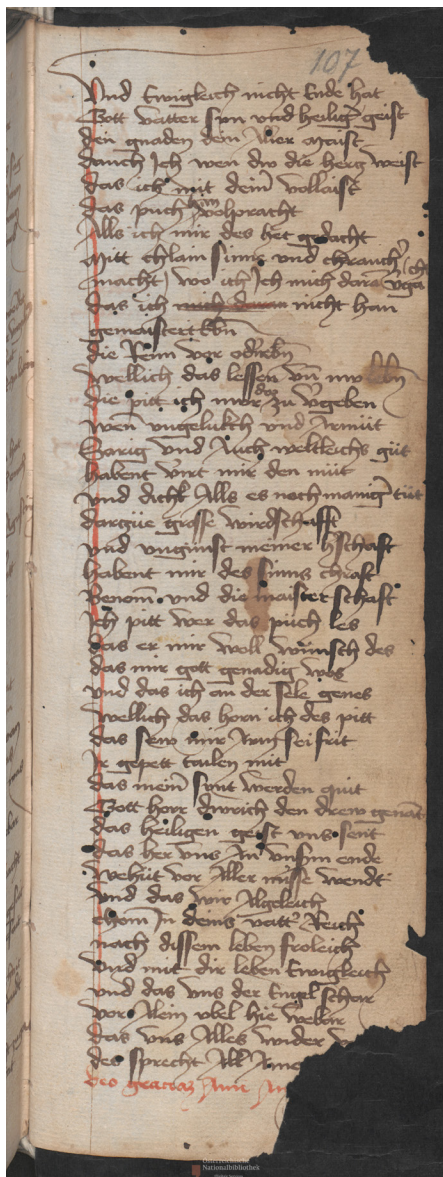 107
Vnd Ewigleich nicht Ende hat
Gott vatter Sun vnd heiliger geist
den gnaden dein
danch Ich wen dw die herg weist
das ich mit deim vollaist
das puech han volpracht
Alls ich mir des het gedacht
Mitt chlain Sinn vnd chranch
macht wo ich Ich mich daran
das ich nicht han
gemaistert
die Reim vor
wellich das lessen vnd
die pitt ich mir das zu vergeben
wen vngelukch vnd Armüt
Sarig vnd Auch weltleichs güt
habent mir den müt
vnd dickh Alls es noch maniger tüt
darzue grosse wirdschafft
vnd vngunst meiner hschaft
habent mir des Sinns chraft
Benom vnd die maisterschaft
Ich pitt wer das püch les
das er mir woll wünsch des
das mir gott genadig wes
vnd das ich an der sele genes
wellich das horn ich des pitt
das sew mir Seifrit
Ir gepett tailen mit
das mein Sunt werden quit
Gott herr durich den drew genant
das heiligen geist vns sent
das her vns An vnserm ende
wehüt vor Aller misse wendt
vnd das wir Algeleich
chom In deins vatter Reich
nach dissem leben froleich
vnd mit dir leben Ewigleich
vnd das vns der Engel schar
vor Alem vbel hie webar
das vns Alles wider
des sprecht All Ame
Deo gracias
Österreichische
Nationalbibliothek